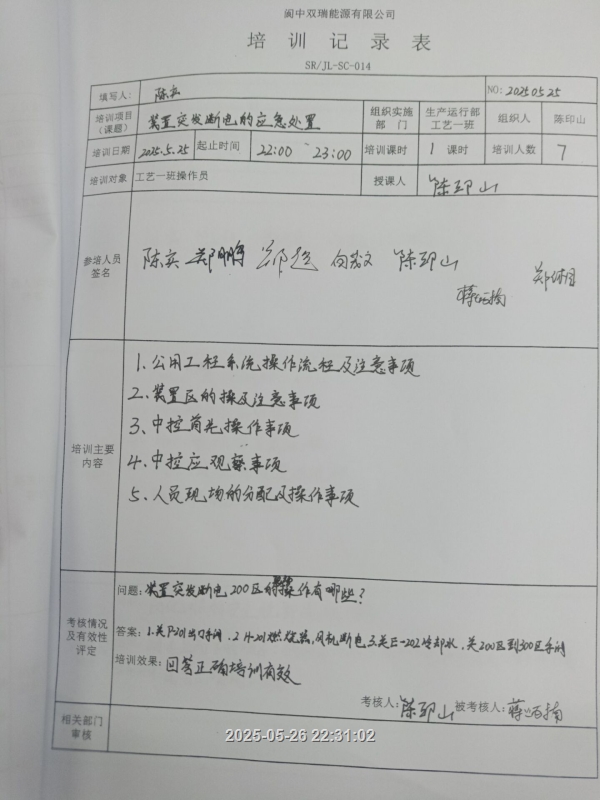 阆中双瑞能源有限公司
培训记录表
SR/JL-SC-014
填写人: 陈实 NO: 20250525
培训项目（课题） 装置突发断电的应急处置 组织实施部门 生产运行部工艺一班 组织人 陈印山
培训日期 2025.5.25 起止时间 22:00 ~ 23:00 培训课时 1 课时 培训人数 7
培训对象 工艺一班操作员 授课人 陈印山
参培人员签名 陈实 郑鹏 郑超 陈印山
培训主要内容
1、公用工程系统操作流程及注意事项
2、装置区的操及注意事项
3、中控首先操作事项
4、中控应观察事项
5、人员现场的分配及操作事项
考核情况及有效性评定
问题: 装置突发断电200区的操作有哪些?
答案: 1.关P-201出口手阀,2.H-201燃烧器,风机断电 3.关E-202冷却水,关200区到300区手阀
培训效果: 回答正确培训有效
考核人: 陈印山 被考核人:
相关部门审核
2025-05-26 22:31:02